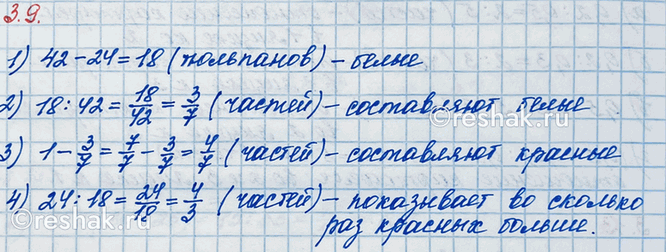 3.9.
1) 42 − 24 = 18 (тюльпанов) – белые
2) 18 : 42 = 18/42 = 3/7 (частей) – составляют белые
3) 1 − 3/7 = 7/7 − 3/7 = 4/7 (частей) – составляют красные
4) 24 : 18 = 24/18 = 4/3 (частей) – показывает во сколько
раз красных больше.
©Reshak.ru